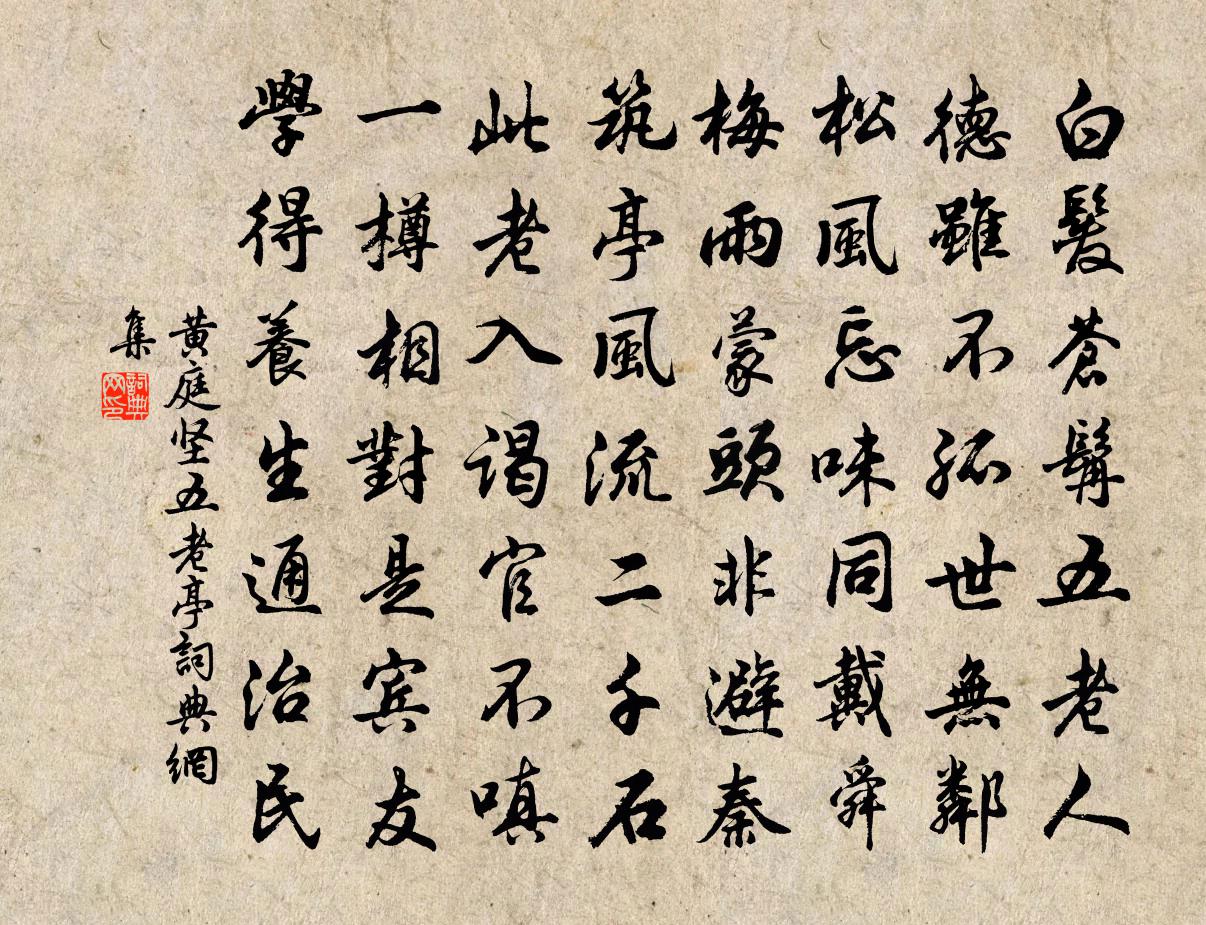 白髮蒼髯五老人
德雖不孤世無鄰
松風忘味同戴舜
梅雨蒙頭非避秦
筑亭風流二千石
此老入谒官不嗔
一樽相對是宾友
學得養生通治民
黄庭坚五老亭詞典網
集
詞典
网印